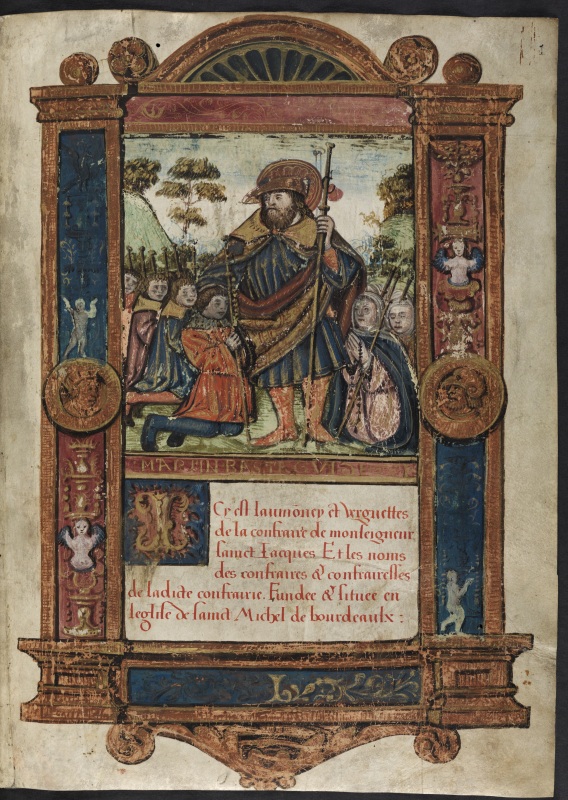 I
Cy est laumõney et
de la confrairie de monseigneur
sainct Iacques Et les noms
des confraires & confrairesses
de ladicte confrairie. Fundee & situee en
leglise de sainct Michel de bourdeaulx :